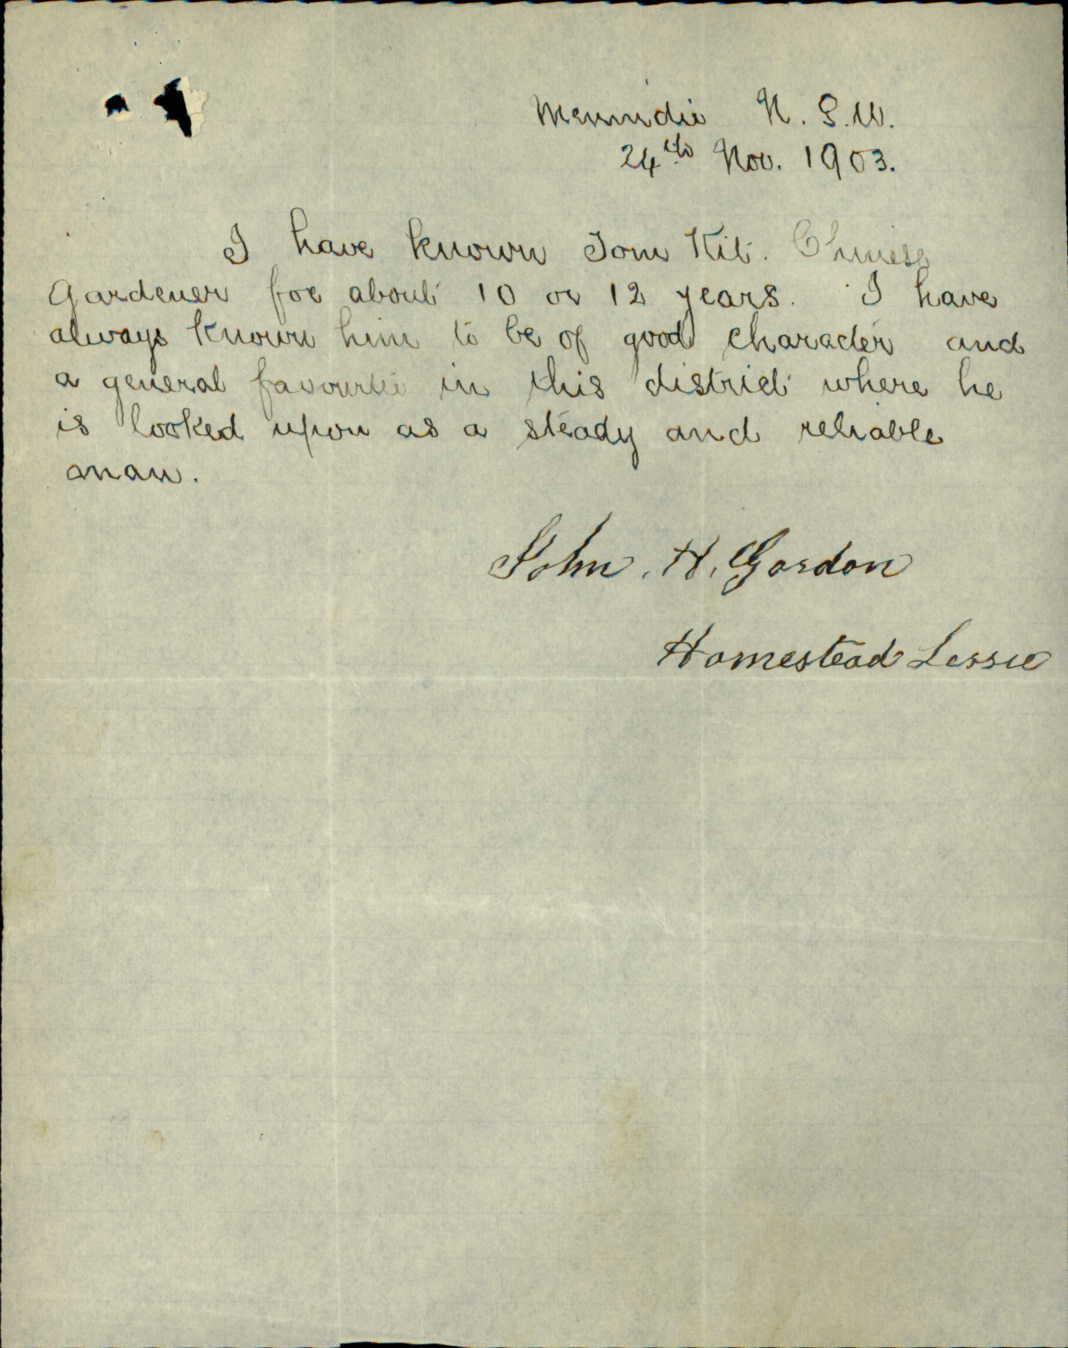 Menindie N. S. W.
24th Nov. 1903.
I have known Tom Kit. Chinese
Gardener for about 10 or 12 years. I have
always known him to be of good character and
a general favourite in this district where he
is looked upon as a steady and reliable
man.
John. H. Gordon
Homestead Lessee